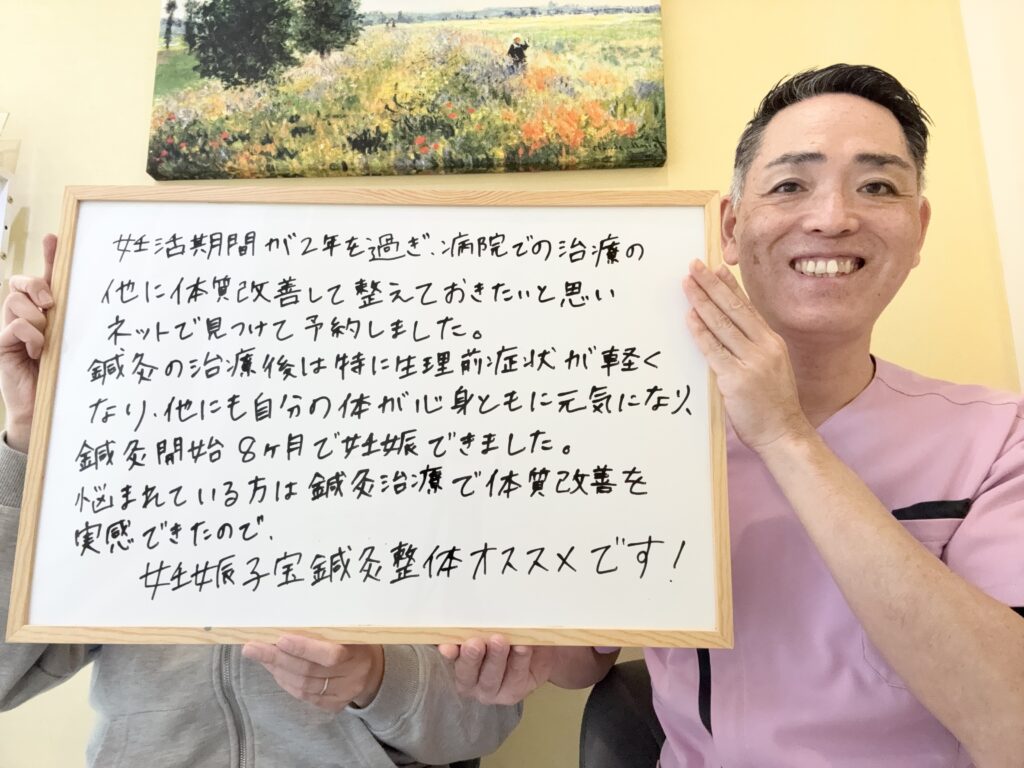 妊活期間が2年を過ぎ、病院での治療の
他に体質改善して整えておきたいと思い
ネットで見つけて予約しました。
鍼灸の治療後は特に生理前症状が軽く
なり、他にも自分の体が心身ともに元気になり、
鍼灸開始8ヶ月で妊娠できました。
悩まれている方は鍼灸治療で体質改善を
実感できたので、
妊娠子宝鍼灸整体オススメです!